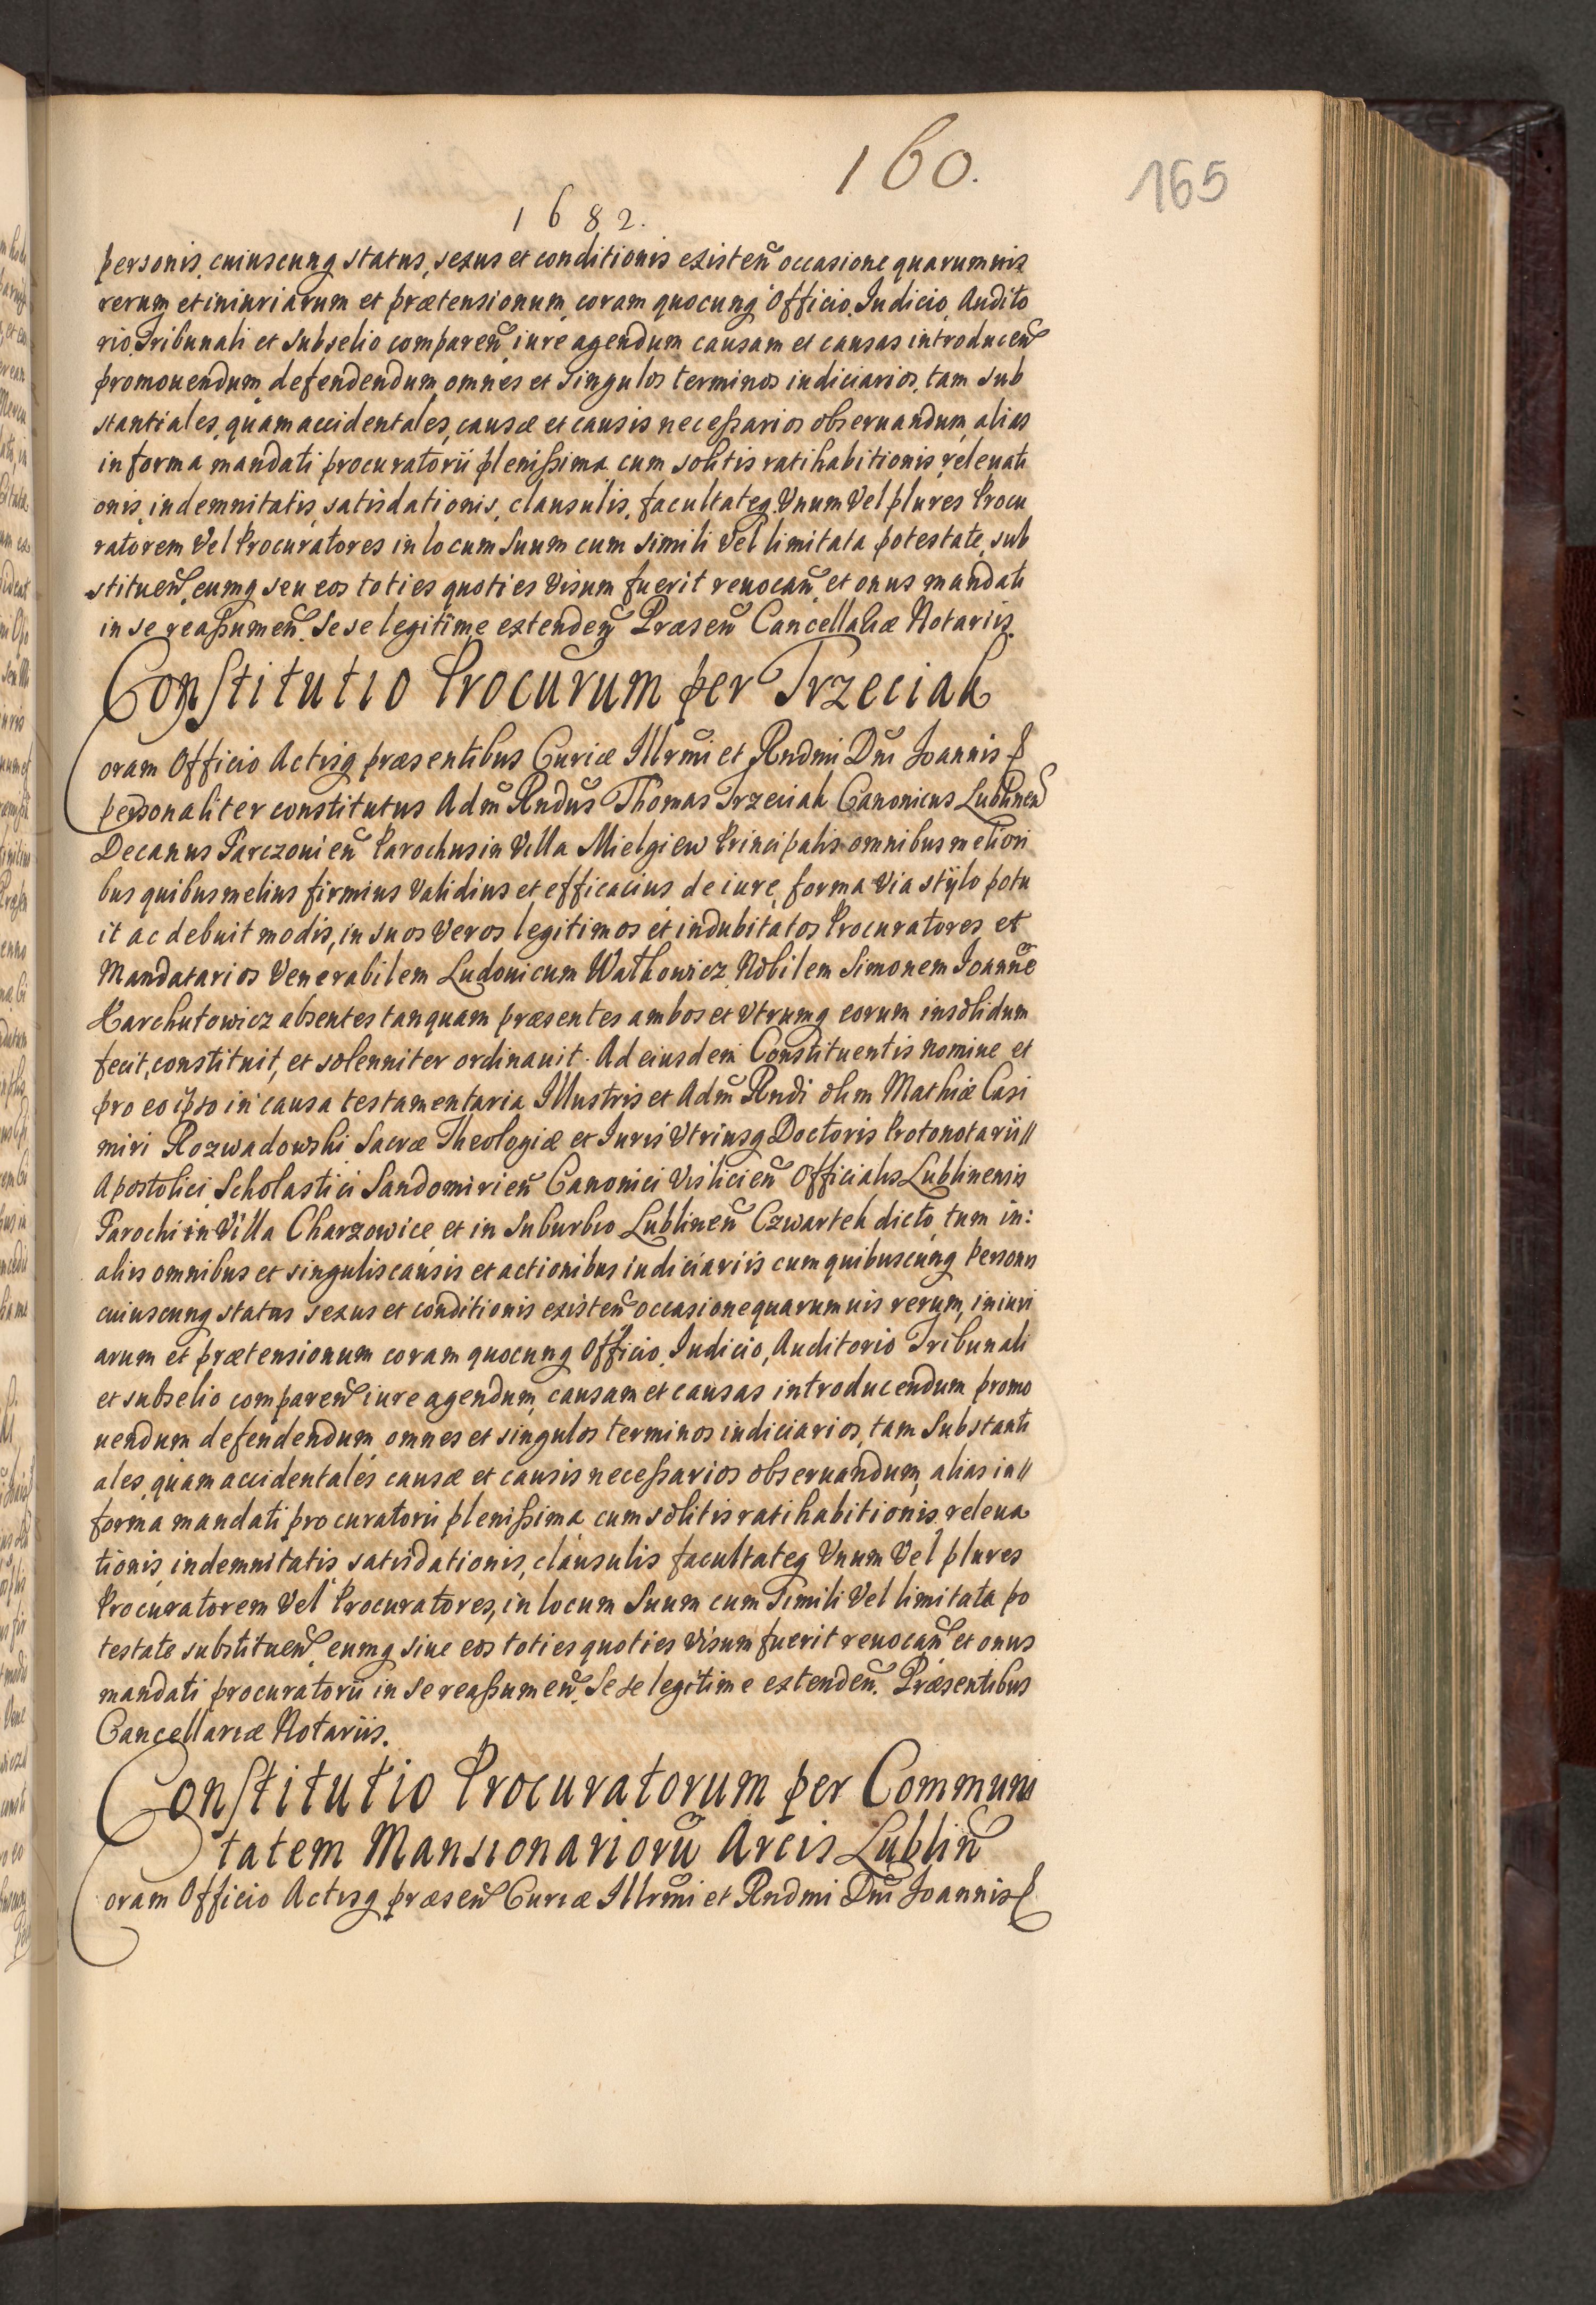 160.
165
1682.
personis, cuiuscunq status, sexus et conditionis existen̄ occasione quarumuis
rerum et iniuriarum et prætensionum, coram quocunq Officio, Iudicio, Audito
rio, Tribunali et Subselio comparen̄, iure agendum causam et causas introducen̄
promouendum, defendendum, omnes et singulos terminos iudiciarios, tam sub
stantiales, quam accidentales, causæ et causis necessarios obseruandum, alias
in forma mandati procuratorii plenissima, cum solitis ratihabitionis, releuati
onis, indemnitatis, satisdationis, clausulis, facultateq Vnum Vel plures Procu
ratorem Vel Procuratores in locum suum cum simili Vel limitata potestate, sub
stituen̄, eumq seu eos toties quoties Visum fuerit reuocan̄, et onus mandati
in se reassumen̄. Se se legitime extenden̄ Præsen̄ Cancellariæ Notariis.
Constitutio Procurum per Trzeciak
Coram Officio Actisq præsentibus Curiæ Illrm̄i et Rndmi Dn̄i Joannis
personaliter constitutus Adm̄ Rndus Thomas Trzeciak Canonicus Lublinen̄
Decanus Parczouien̄ Parochus in Villa Mielgiew Principalis omnibus meliori
bus quibus melius firmius Validius et efficacius, de iure, forma Via stÿlo potu
it ac debuit modis, in suos Veros legitimos et indubitatos Procuratores et
Mandatarios Venerabilem Ludouicum Watkowicz, Nobilem Simonem Joanne
Harchutowicz absentes tanquam præsentes ambos et Vtrumq eorum insolidum
fecit, constituit, et solenniter ordinauit. Ad eiusdem Constituentis nomine et
pro eo ipso in causa testamentaria Illustris et Adm̄ Rndi olim Mathiæ Casi
miri Rozwadowski Sacræ Theologiæ et Iuris Vtriusq Doctoris Protonotarii //
Apostolici Scholastici Sandomirien̄ Canonici Vislicien̄ Officialis Lublinensis
Parochi in Villa Charzowice, et in Suburbio Lublinen̄ Czwartek dicto, tum in:
aliis omnibus et singulis causis et actionibus iudiciariis cum quibuscunq Personis
cuiuscunq status sexus et conditionis existen̄ occasione quarumuis rerum, iniuri
arum et prætensionum coram quocunq Officio, Iudicio, Auditorio Tribunali
et subselio comparen̄ iure agendum, causam et causas introducendum promo
uendum defendendum omnes et singulos terminos iudiciarios, tam Substanti
ales, quam accidentales causæ et causis necessarios obseruandum, alias in //
forma mandati procuratorii plenissima cum solitis ratihabitionis, releua
tionis, indemnitatis satisdationis, clausulis facultateq Vnum Vel plures
Procuratorem Vel Procuratores, in locum Suum cum Simili Vel limitata po
testate substituen̄, eumq siue eos toties quoties Visum fuerit reuocan̄ et onus
mandati procuratorii in se reassumen̄. Se se legitime extenden̄. Præsentibus
Cancellariæ Notariis.
Constitutio Procuratorum per Communi
tatem Mansionariorū Arcis Lublin̄
Coram Officio Actisq præsen̄ Curiæ Illrm̄i et Rndmi Dn̄i Joannis